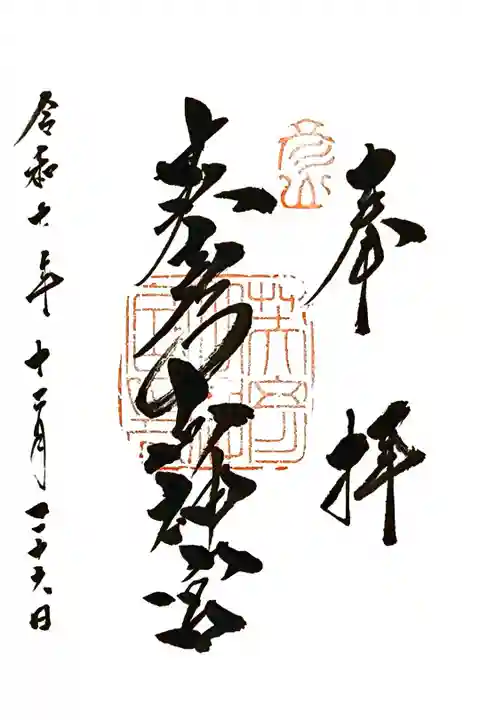 奉拝
英彦山神宮
令和六年十二月二十六日